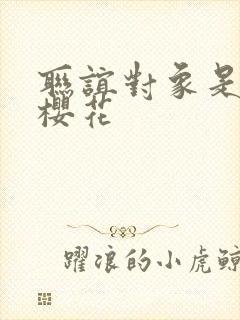 聯誼對象是
櫻花
躍浪的小虎鯨